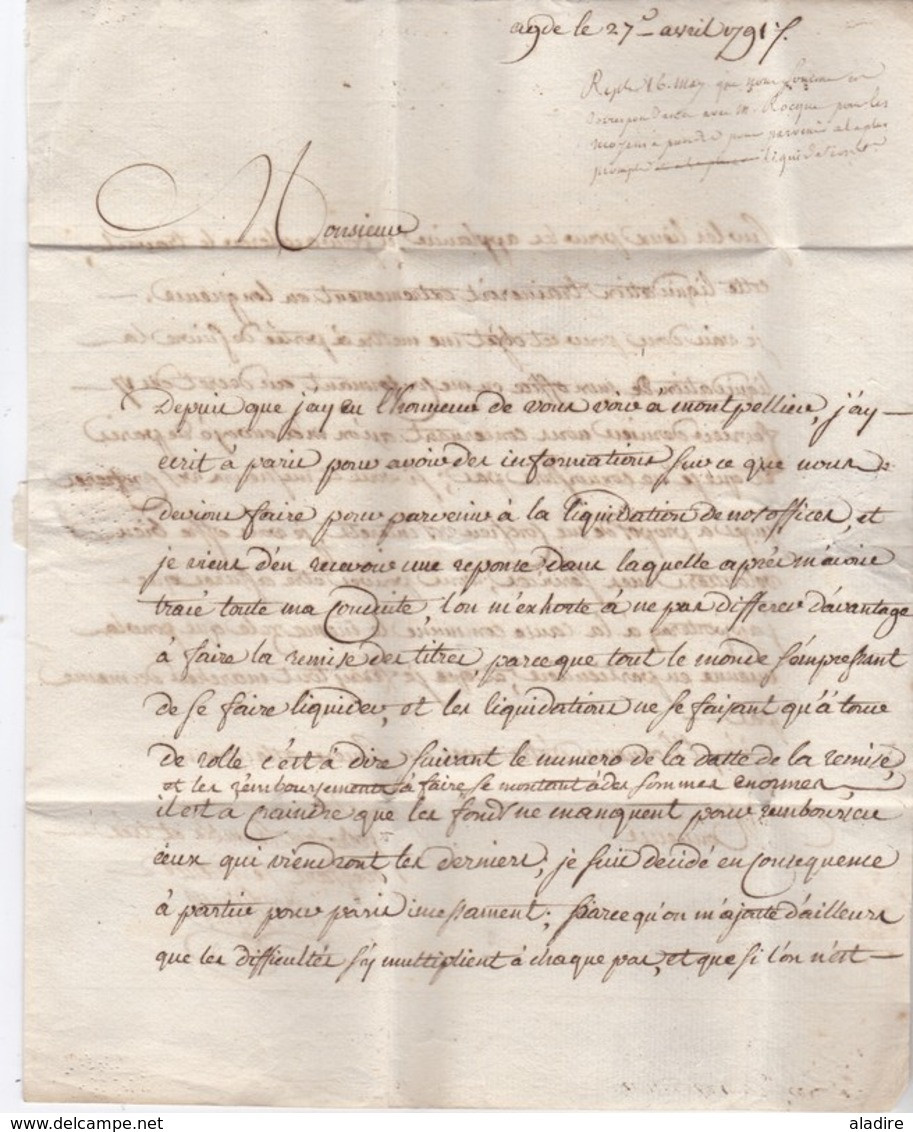 agde le 27e avril 1791 /.
Repdu 16. may que nous sommes en
correspondance avec m. Rocque pour les
moyens a prendre pour parvenir a la plus
prompte liquidation
Monsieur
Depuis que j'ay eu l'honneur de vous voir a montpellier, j'ay
ecrit à paris pour avoir des informations sur ce que nous
devions faire pour parvenir à la liquidation de nos offices, et
je viens d'en recevoir une reponse dans laquelle après m'avoir
tracé toute ma conduite, l'on m'exhorte à ne pas differer d'avantage
à faire la remise des titres parceque tout le monde s'empressant
de se faire liquider, et les liquidations ne se faisant qu'à tour
de rolle c'est à dire suivant le numero de la datte de la remise,
et les remboursements à faire se montant à des sommes enormes,
il est à craindre que les fonds ne manquent pour rembourser
ceux qui viendront les derniers; je suis decidé en consequence
à partir pour paris incessament; parce qu'on m'ajoute d'ailleurs
que les difficultés s'y multiplient à chaque pas, et que si l'on n'est
aladire